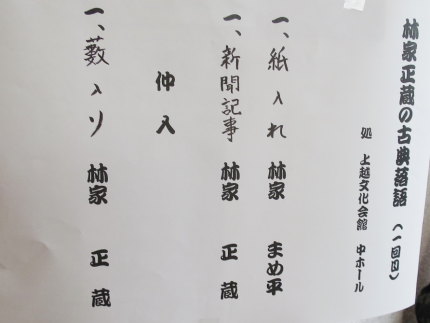 林家正蔵の古典落語 (一回目)
処 上越文化会館 中ホール
一、紙入れ 林家 まめ平
一、新聞記事 林家 正蔵
仲入
一、薮入り 林家 正蔵